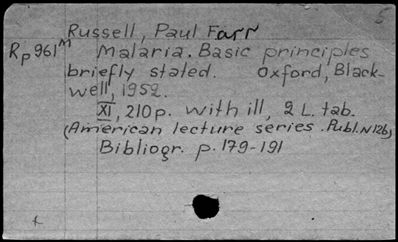 5
Russell, Paul Farr
Rp961M Malaria. Basic principles
briefly stated. Oxford, Black-
well, 1952.
XI, 210p. with ill, 2 L. tab.
(American lecture series. Publ. N126)
Bibliogr. p. 179-191